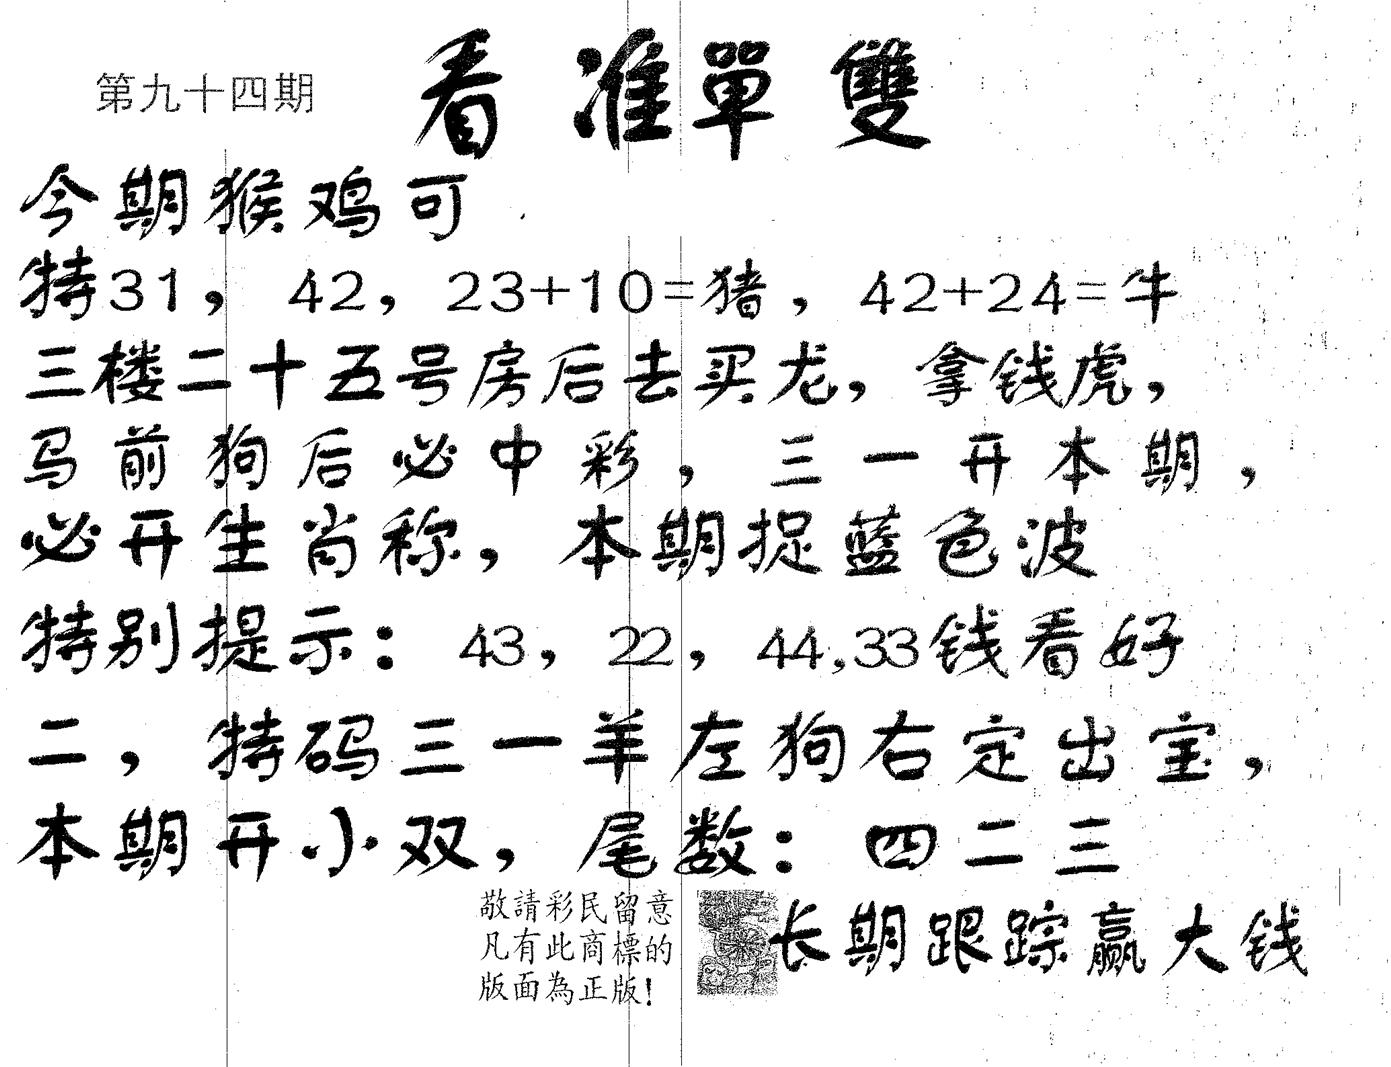 第九十四期
看准單雙
今期猴鸡可
特31，42，23+10=猪，42+24=牛
三楼二十五号房后去买龙，拿钱虎，
马前狗后必中彩，三一开本期，
必开生肖称，本期捉蓝色波
特别提示：43，22，44,33钱看好
二，特码三一羊左狗右定出宝，
本期开小双，尾数：四二三
敬請彩民留意
凡有此商標的
版面為正版!
长期跟踪赢大钱